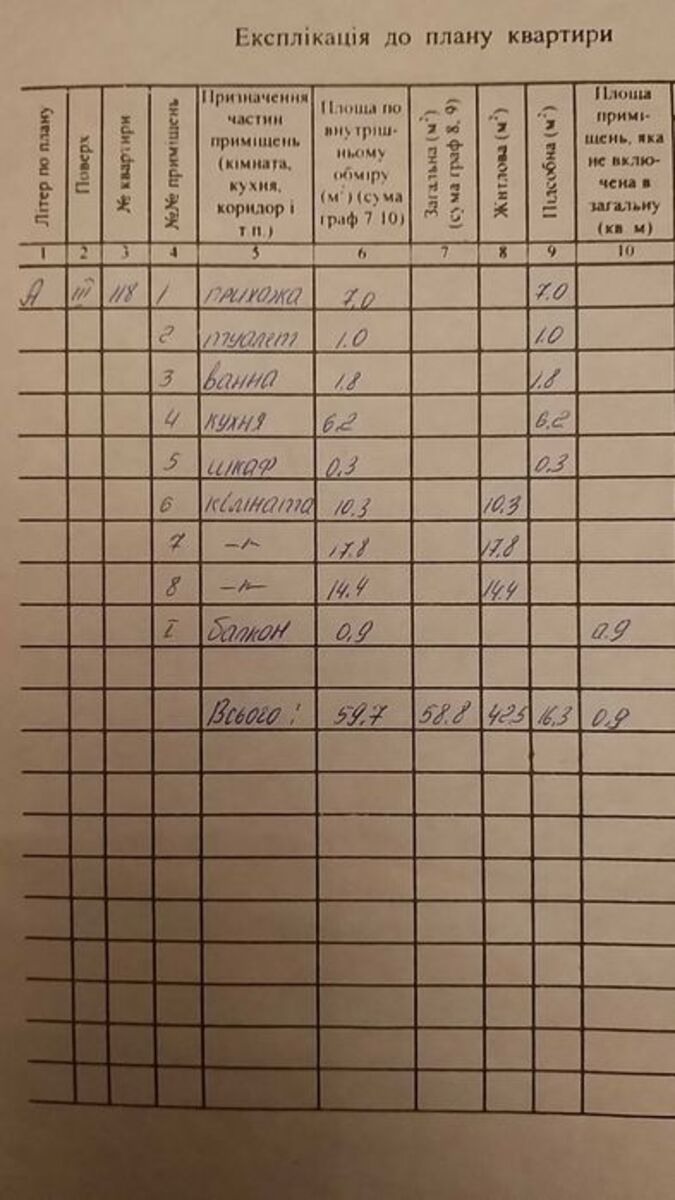 Експлікація до плану квартири
Літер по плану | Поверх | № квартири | №№ приміщень | Призначення частин приміщень (кімната, кухня, коридор і т.п.) | Площа по внутріш-ньому обміру (м²) (сума граф 7 10) | Загальна (м²) (сума граф 8, 9) | Житлова (м²) | Підсобна (м²) | Площа примі-щень, яка не вклю-чена в загальну (кв м)
1 2 3 4 5 6 7 8 9 10
А III 118 1 прихожа 7.0 7.0
2 туалет 1.0 1.0
3 ванна 1.8 1.8
4 кухня 6.2 6.2
5 шкаф 0.3 0.3
6 кімната 10.3 10.3
7 —"— 17.8 17.8
8 —"— 14.4 14.4
I балкон 0,9 0.9
Всього: 59.7 58.8 42.5 16.3 0.9